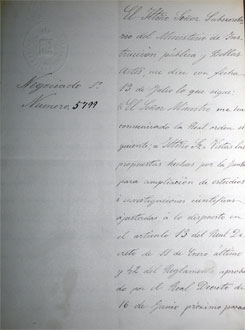 El Iltmo Señor Subsecreta-
rio del Ministerio de Ins-
trucción pública y Bellas
Artes me dice con fecha
13 de Julio lo que sigue:
"El Señor Ministro me ha
comunicado la Real orden si-
guiente: = Iltmo Sr. Vistas las
propuestas hechas por la Junta
para ampliación de estudios
é investigaciones científicas
ajustadas á lo dispuesto en
el artículo 13 del Real De-
creto de 11 de Enero último
y 42 del Reglamento aproba-
do por el Real Decreto de
16 de Junio próximo pasado
Negociado 1º
Número 5499